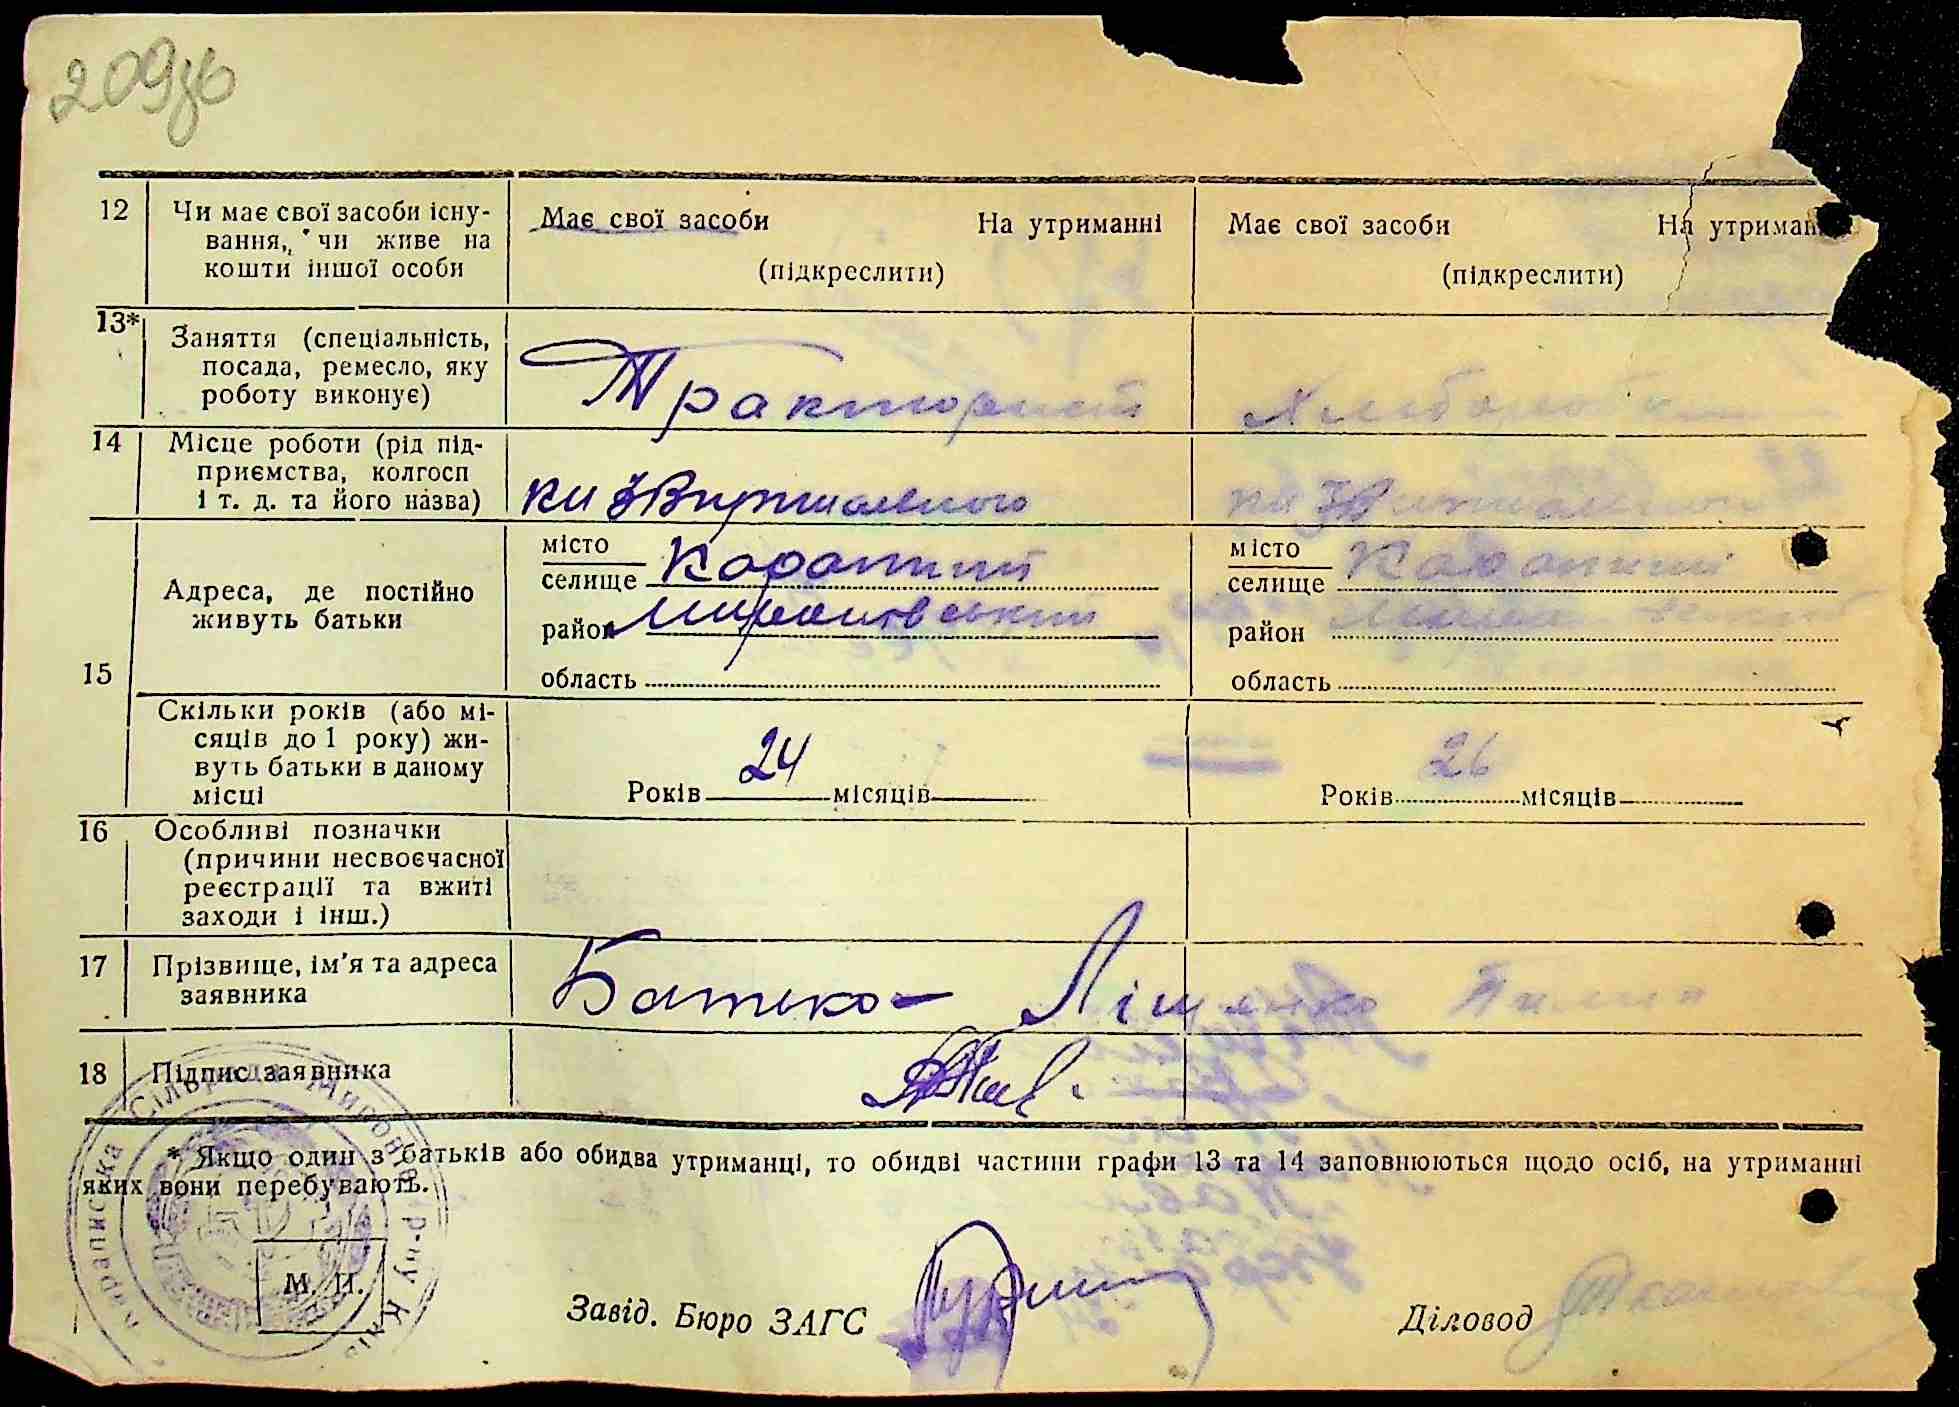 209зв
12
Чи має свої засоби існу-
вання, чи живе на
кошти іншої особи
Має свої засоби На утриманні
(підкреслити)
Має свої засоби На утриман
(підкреслити)
13*
Заняття (спеціальність,
посада, ремесло, яку
роботу виконує)
Тракторист
Хлібороб
14
Місце роботи (рід під-
приємства, колгосп
і т. д. та його назва)
15
Адреса, де постійно
живуть батьки
місто
селище Карапиші
район Миронівський
область
місто
селище Карапиші
район
область
Скільки років (або мі-
сяців до 1 року) жи-
вуть батьки в даному
місці
Років 24 місяців
Років 26 місяців
16
Особливі позначки
(причини несвоєчасної
реєстрації та вжиті
заходи і інш.)
17
Прізвище, ім'я та адреса
заявника
Батько – Пилип
18
Підпис заявника
* Якщо один з батьків або обидва утриманці, то обидві частини графи 13 та 14 заповнюються щодо осіб, на утриманні
яких вони перебувають.
М. П.
Завід. Бюро ЗАГС
Діловод